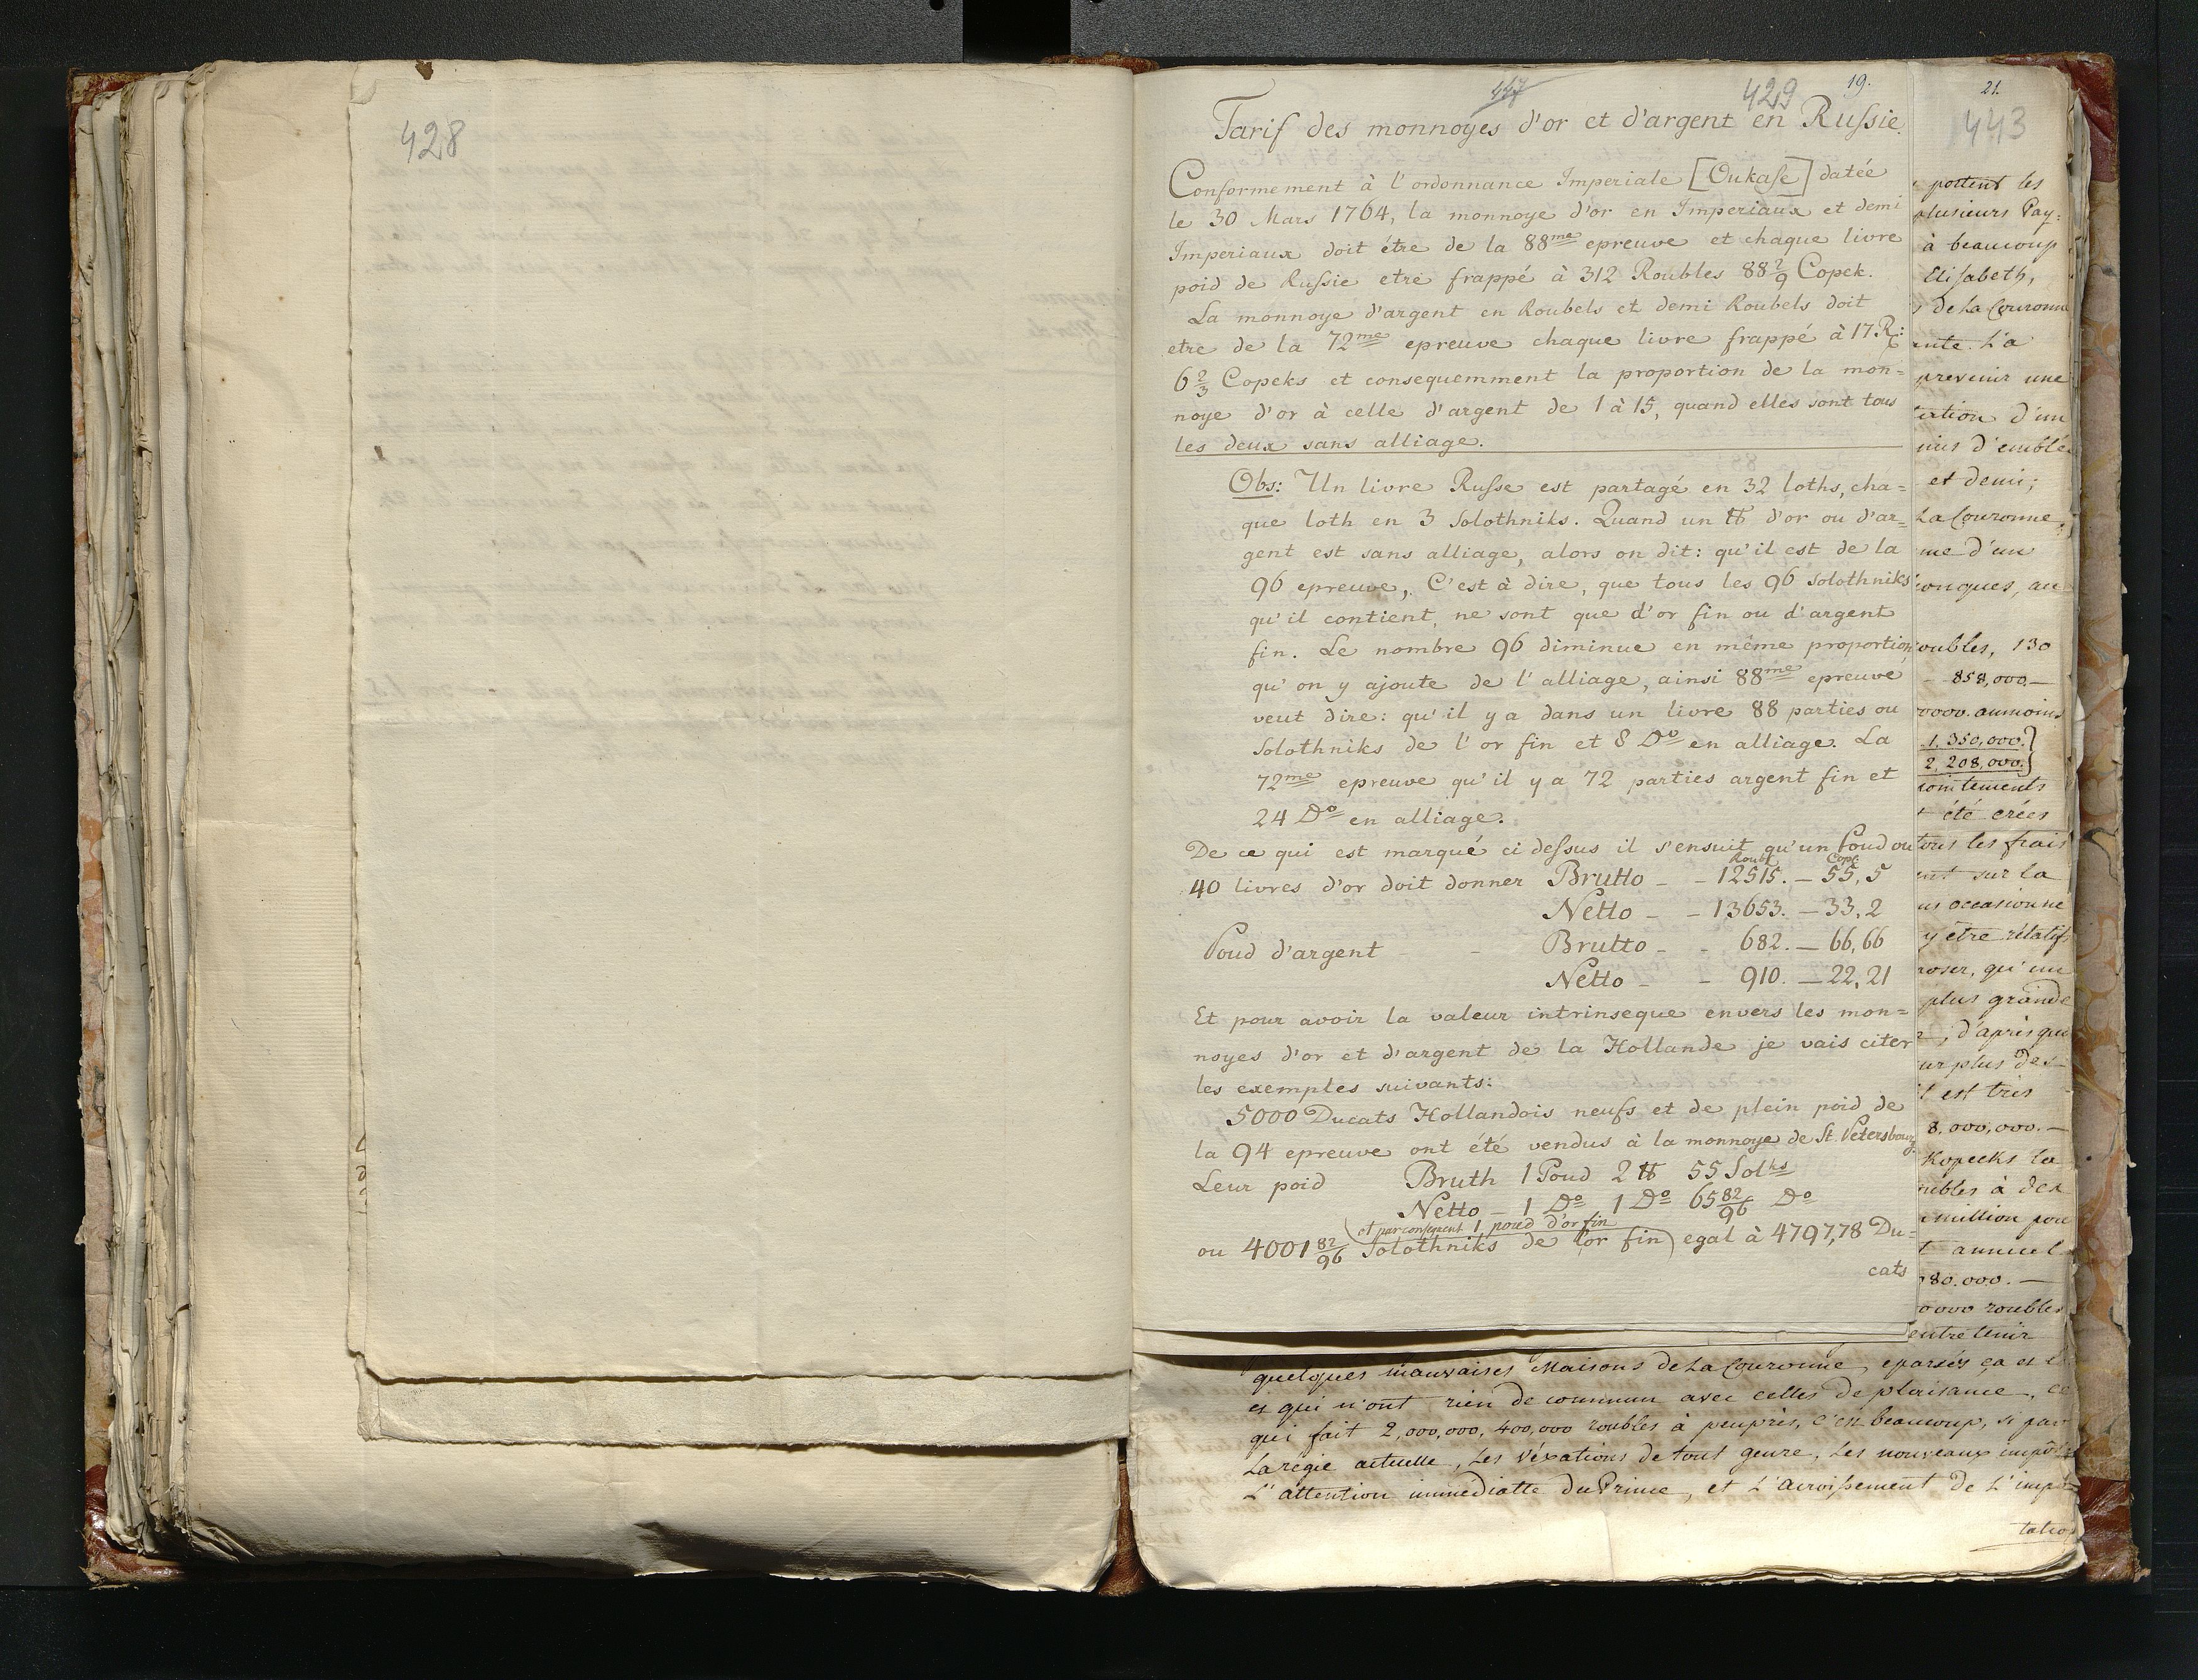 428
447
429
19.
Tarif des monnoyes d'or et d'argent en Russie.
Conformement à l'ordonnance Imperiale [Oukase] datée
le 30 Mars 1764, la monnoye d'or en Imperiaux et demi
Imperiaux doit étre de la 88me epreuve et chaque livre
poid de Russie etre frappé à 312 Roubles 88 2/9 Copek.
La monnoye d'argent en Roubels et demi Roubels doit
etre de la 72me epreuve chaque livre frappé à 17 R:
6 2/3 Copeks et consequemment la proportion de la mon=
noye d'or à celle d'argent de 1 à 15, quand elles sont tous
les deux sans alliage.
Obs: Un livre Russe est partagé en 32 loths, cha=
que loth en 3 Solothniks. Quand un ℔ d'or ou d'ar=
gent est sans alliage, alors on dit: qu'il est de la
96 epreuve, C'est à dire, que tous les 96 solothniks
qu'il contient, ne sont que d'or fin ou d'argent
fin. Le nombre 96 diminue en même proportion
qu'on y ajoute de l'alliage, ainsi 88me epreuve
veut dire: qu'il y a dans un livre 88 parties ou
Solothniks de l'or fin et 8 Do en alliage. La
72me epreuve qu'il y a 72 parties argent fin et
24 Do en alliage.
De ce qui est marqué ci dessus il s'ensuit qu'un Poud ou
Roubl. Cop:
40 livres d'or doit donner Brutto - - 12515. - 55,5
Netto - - 13653. - 33,2
Poud d'argent - - Brutto - - 682. - 66,66
Netto - - 910. - 22,21
Et pour avoir la valeur intrinseque envers les mon=
noyes d'or et d'argent de la Hollande je vais citer
les exemples suivants:
5000 Ducats Hollandois neufs et de plein poid de
la 94 epreuve ont été vendus à la monnoye de St. Petersbourg.
Leur poid Bruth 1 Poud 2 ℔ 55 Solks
Netto - 1 Do 1 Do 65 82/96 Do
(et par consequent 1 poud d'or fin
ou 4001 82/96 Solothniks de l'or fin) egal à 4797,78 Du=
cats
21.
443
portent les
plusieurs Pay=
à beaucoup
Elisabeth,
de La Couronne
L'a
prevenir une
d'un
d'emblé
et demi;
La Couronne,
me d'un
au
oubles, 130
- 858,000.-
0000. aumoins
1,350,000.}
2,208,000.}
été crées
tous les frais
sur la
us occasionne
y être rélatifs
qu'un
plus grande
d'après que
ur plus des
est très
8,000,000.-
Kopecks la
à des
million pou
annuel
80.000.-
0000 roubles
entretenir
quelques mauvaises Maisons de La Couronne, eparsés ça et
et qui n'ont rien de commun avec celles de plaisance, ce
qui fait 2,000,000, 400,000 roubles à peuprès, c'en beaucoup, si par
La régie actuelle, Les Véxations de tout genre, Les nouveaux impôts
L'attention immédiatte Du Prince, et L'acroissement de L'impôt=
tatio